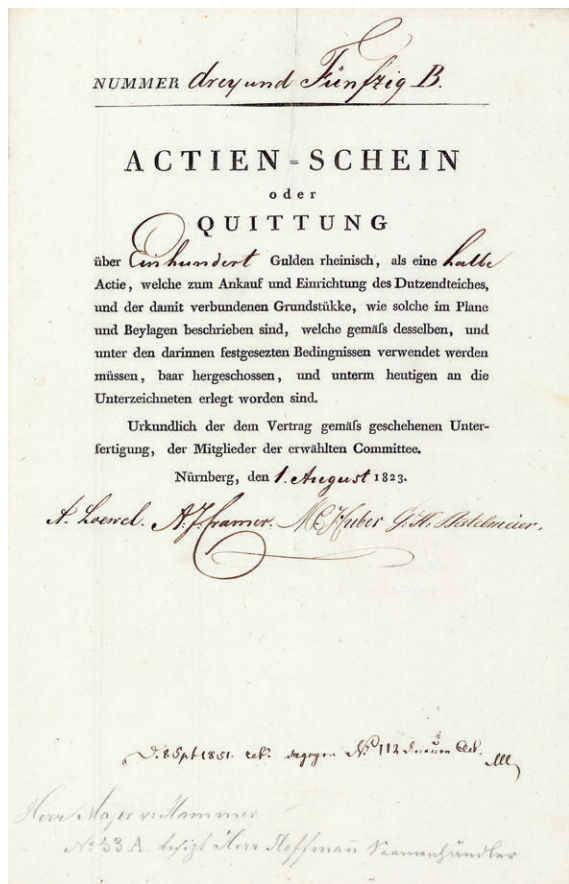 NUMMER dreyund Fünfzig B.
ACTIEN-SCHEIN
oder
QUITTUNG
über Einhundert Gulden rheinisch, als eine halbe
Actie, welche zum Ankauf und Einrichtung des Dutzendteiches,
und der damit verbundenen Grundstükke, wie solche im Plane
und Beylagen beschrieben sind, welche gemäſs desselben, und
unter den darinnen festgesezten Bedingnissen verwendet werden
müssen, baar hergeschossen, und unterm heutigen an die
Unterzeichneten erlegt worden sind.
Urkundlich der dem Vertrag gemäſs geschehenen Unter-
fertigung, der Mitglieder der erwählten Committee.
Nürnberg, den 1. August 1823.
A. Loewel. A. J. Cramer. Huber
D. 8 Spt 1851. dagegen No 112
Herr Major v. Hammer
No 53 A. besizt Herr Hoffmann Saamenhändler